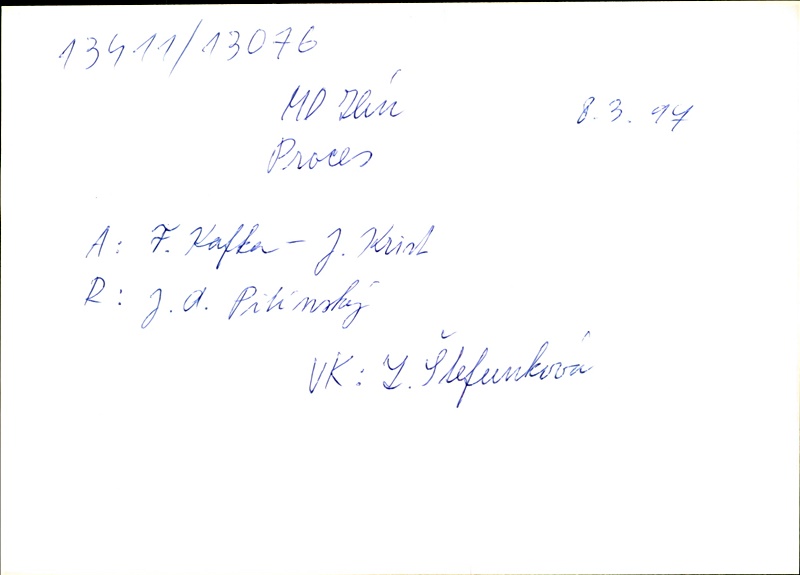 13411/13076
MD Zlín
8. 3. 97
Proces
A: F. Kafka - J. Krist
R: J. A. Pitínský
VK: Z. Štefunková